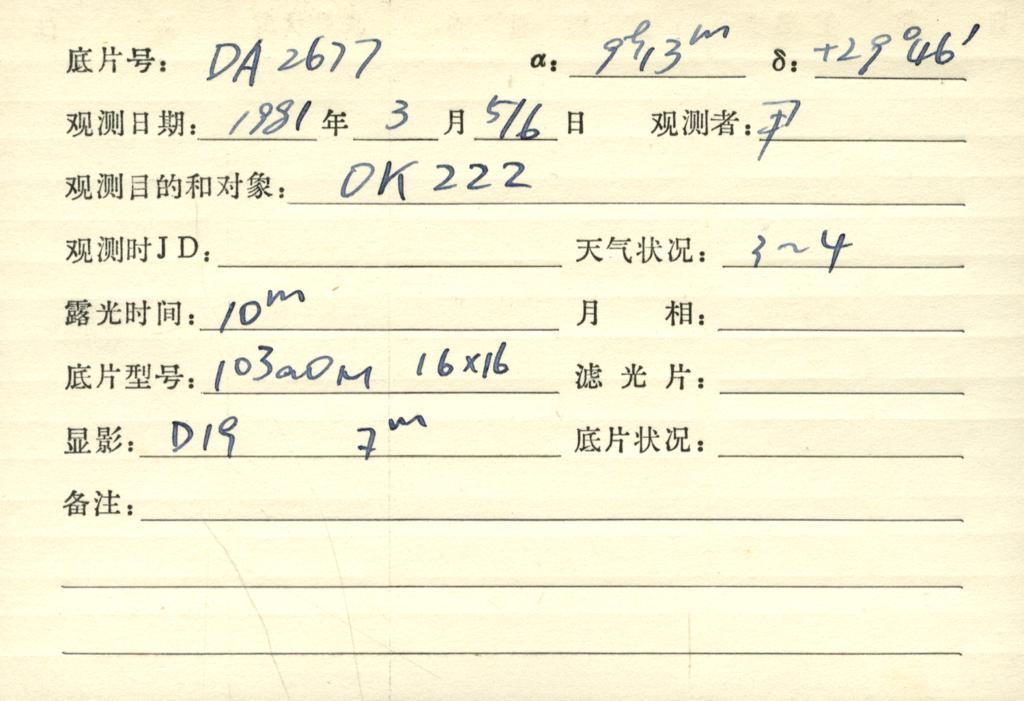 底片号: DA 2677 α: 9ʰ13ᵐ δ: +29°46′
观测日期: 1981 年 3 月 5/6 日 观测者:
观测目的和对象: OK 222
观测时JD: 天气状况: 3~4
露光时间: 10ᵐ 月 相:
底片型号: 103aO M 16×16 滤 光 片:
显影: D19 7ᵐ 底片状况:
备注: